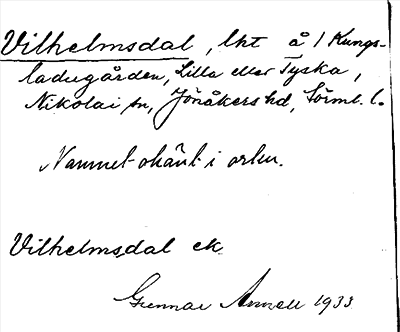 Vilhelmsdal, lht å 1 Kungs-
ladugården, Lilla eller Tyska,
Nikolai sn, Jönåkers hd, Sörml. l.
Namnet okänt i orten.
Vilhelmsdal ek
Gunnar Annell 1933